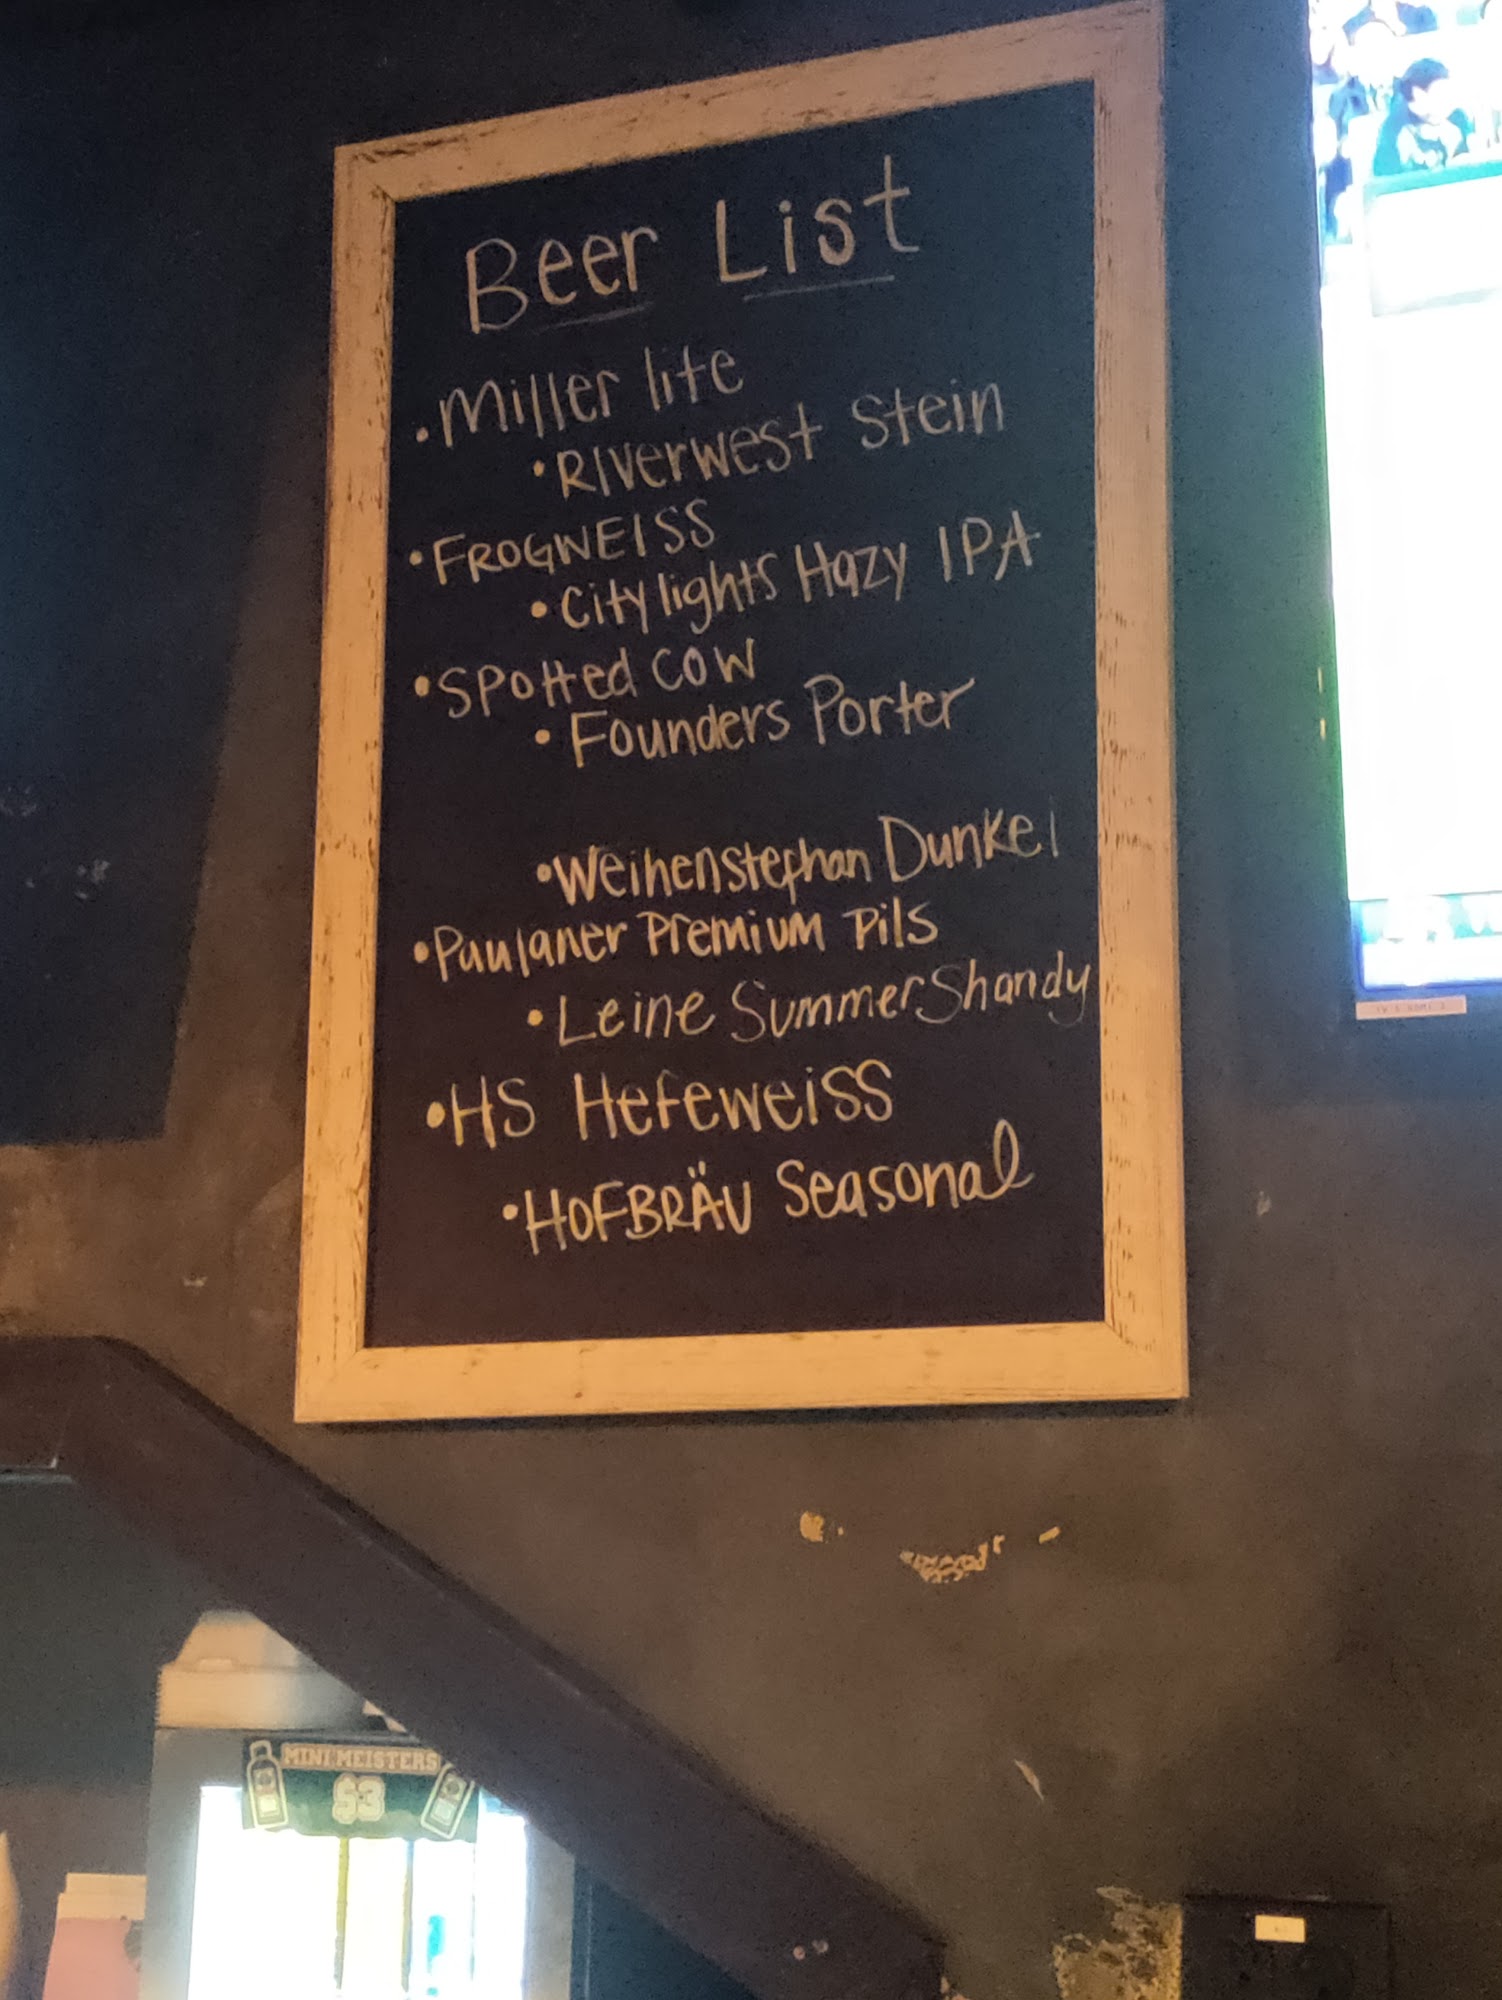 Beer List
• Miller lite
• Riverwest Stein
• FROGWEISS
• City lights Hazy IPA
• Spotted COW
• Founders Porter
• Weihenstephan Dunkel
• Paulaner Premium Pils
• Leine Summer Shandy
• HS Hefeweiss
• HOFBRÄU Seasonal
MINI MEISTERS
$3